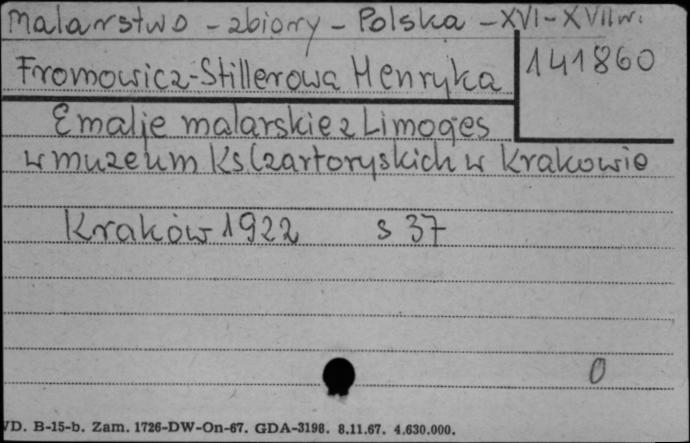 Malarstwo - zbiory - Polska - XVI-XVII w.
Fromowicz-Stillerowa Henryka
141860
Emalje malarskie z Limoges
w muzeum Ks Czartoryskich w Krakowie
Kraków 1922 s 37
0
VD. B-15-b. Zam. 1726-DW-On-67. GDA-3198. 8.11.67. 4.630.000.